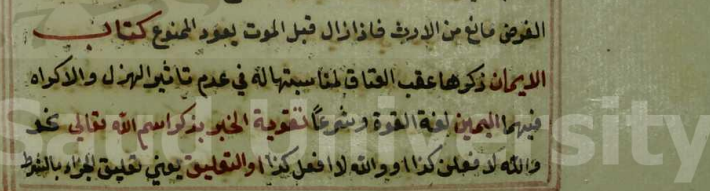 الفرض مانع من الارث فاذا زال قبل الموت يعود الممنوع كتاب
الايمان ذكرها عقب العتاق لمناسبتها له في عدم تاثير الهزل والاكراه
فيهما اليمين لغة القوة وشرعا تقوية الخبر بذكر اسم الله تعالى نحو
والله لافعلن كذا او والله لا افعل كذا او التعليق يعني تعليق الجزاء بالشرط
Saud University